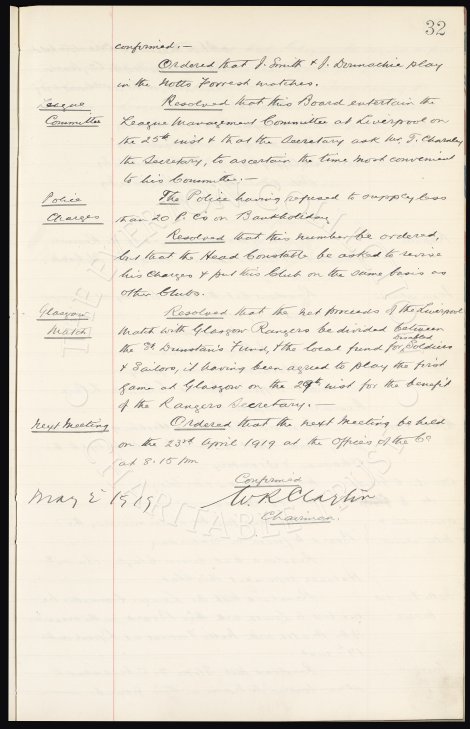 32
confirmed:-
Ordered that J. Smith & J. Donnachie play
in the Notts Forrest matches.
League Committee
Resolved that this Board entertain the
League Management Committee at Liverpool on
the 25th inst & that the Secretary ask Mr. T. Charnley
the Secretary, to ascertain the time most convenient
to his Committee.-
Police Charges
The Police having refused to supply less
than 20 P. Cs on Bank holiday
Resolved that this number be ordered,
but that the Head Constable be asked to revise
his charges & put this Club on the same basis as
other Clubs.
Glasgow Match
Resolved that the net proceeds of the Liverpool
Match with Glasgow Rangers be divided between
the St Dunstan's Fund, & the local fund for disabled Soldiers
& Sailors, it having been agreed to play the first
game at Glasgow on the 29th inst for the benefit
of the Rangers Secretary.-
Next Meeting
Ordered that the next Meeting be held
on the 23rd April 1919 at the Offices of the Co
at 8.15 pm
Confirmed
May 2 1919
W. R. Clayton
Chairman.